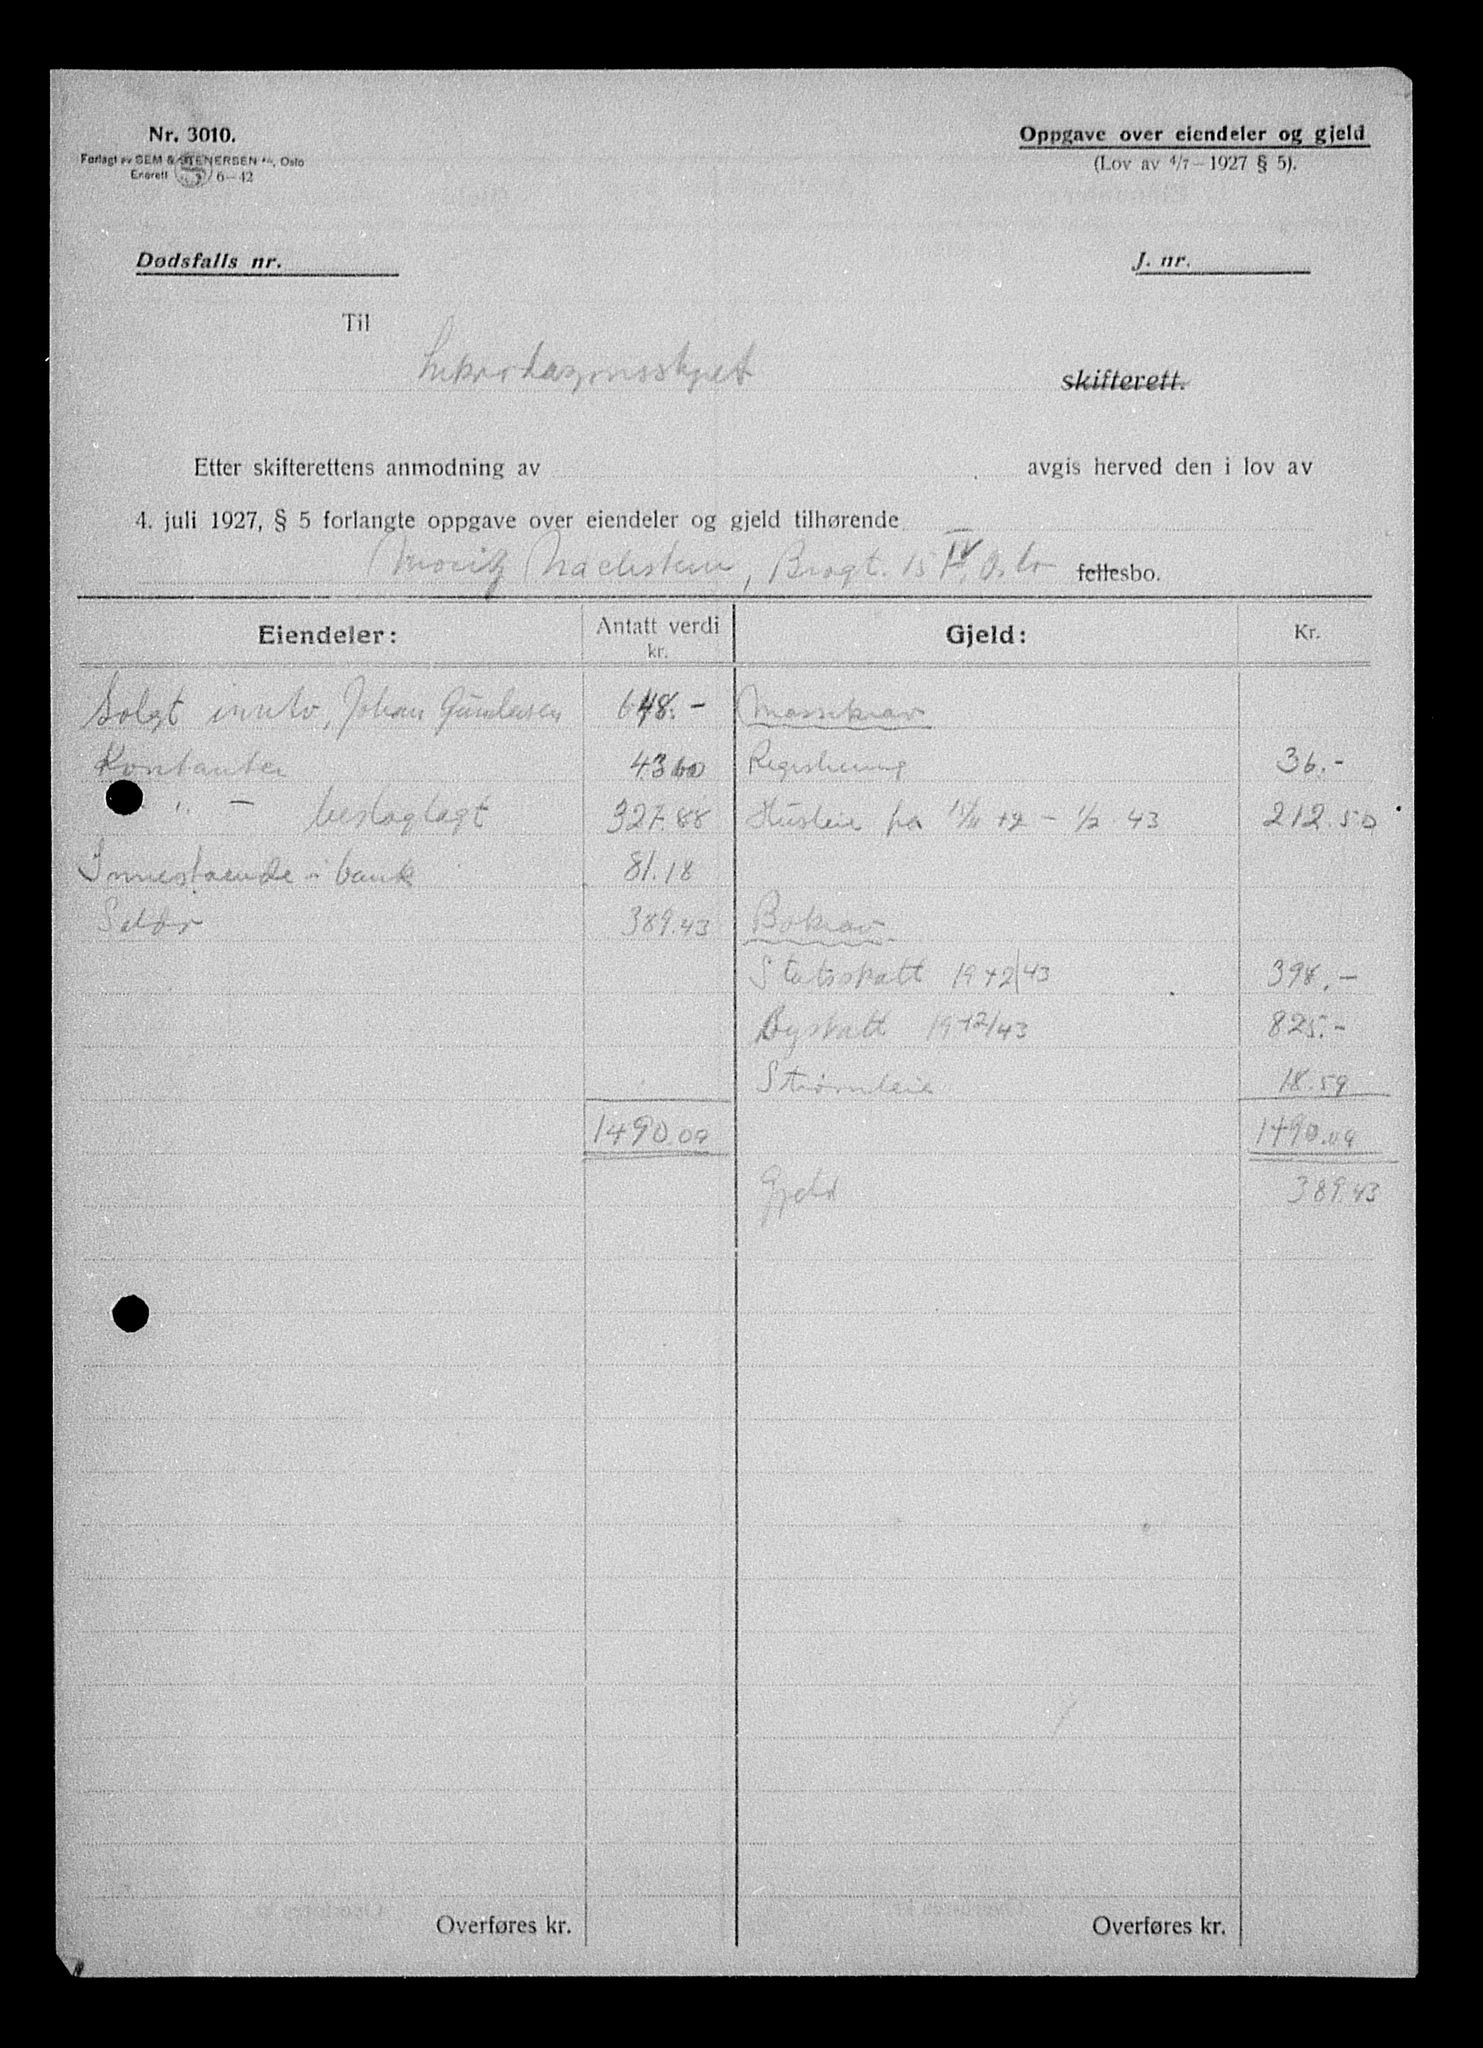 Nr. 3010.
Forlagt av SEM & STENERSEN A/S, Oslo
Enerett S 6-42
Oppgave over eiendeler og gjeld
(Lov av 4/7 - 1927 § 5).
Dødsfalls nr.
J. nr.
Til
skifterett.
Etter skifterettens anmodning av avgis herved den i lov av
4. juli 1927, § 5 forlangte oppgave over eiendeler og gjeld tilhørende
Moritz Nachstern, Brogt. 15 IV, Oslo fellesbo.
Eiendeler: Antatt verdi kr. Gjeld: Kr.
Solgt innbo, Johan Gundersen 648.- Massekrav
Kontanter 43 60 Registrering 36.-
" - beslaglagt 327.88 Husleie fra 15/11 42 - 1/2 43 212.50
Innestaende i bank 81.18
Saldo 389.43 Bokrav
Statsskatt 1942/43 398.-
Byskatt 1942/43 825.-
Strømleie 18.59
1490.09 1490.09
Gjeld 389.43
Overføres kr. Overføres kr.